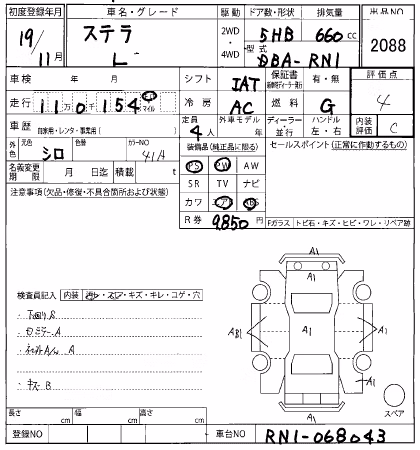 初度登録年月 車名・グレード 駆動 ドア数・形状 排気量 出品NO
19/11月 ステラ L 2WD・4WD 5HB 660cc 2088
型式 DBA-RN1
車検 年 月 シフト IAT 保証書 有・無 評価点
走行 11万0154 km マイル 冷房 AC 燃料 G 4
車歴 自家用・レンタ・事業用( ) 定員 4人 外車モデル 年 ディーラー・並行 ハンドル 左・右 内装評価 C
外色 元色 シロ 色替 カラーNO 41A 装備品(純正品に限る) セールスポイント(正常に作動するもの)
名義変更期限 月 日迄 積載 t PS PW AW
注意事項(欠品・修復・不具合箇所および状態) SR TV ナビ
カワ エアB ABS
R券 9,850円 Fガラス トビ石・キズ・ヒビ・ワレ・リペア跡
A1
検査員記入 内装 汚レ・スレ・キズ・キレ・コゲ・穴
・下回りS
A1
・
AB1 A1 A1
A
・キズB
A1
A1
スペア
長さ cm 幅 cm 高さ cm
登録NO 車台NO RN1-068043